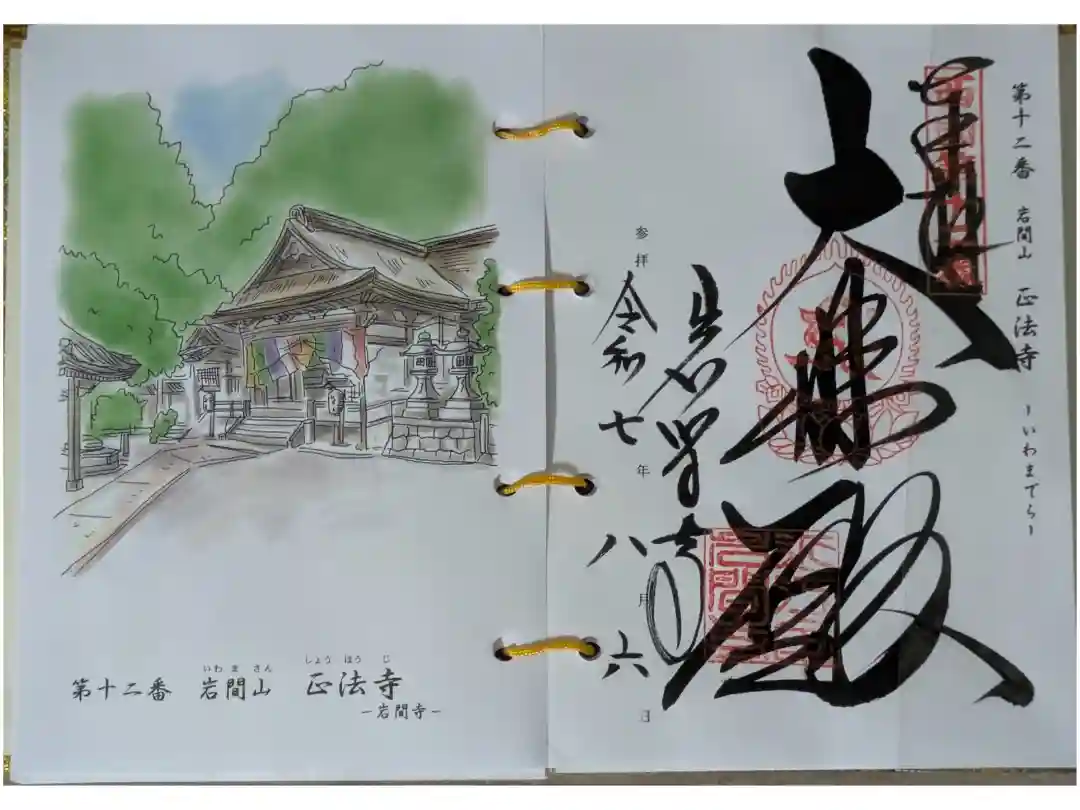 いわまさん しょうほうじ
第十二番 岩間山 正法寺
-岩間寺-
第十二番 岩間山 正法寺 -いわまでら-
大悲殿
岩間寺
参拝 令和七年八月六日